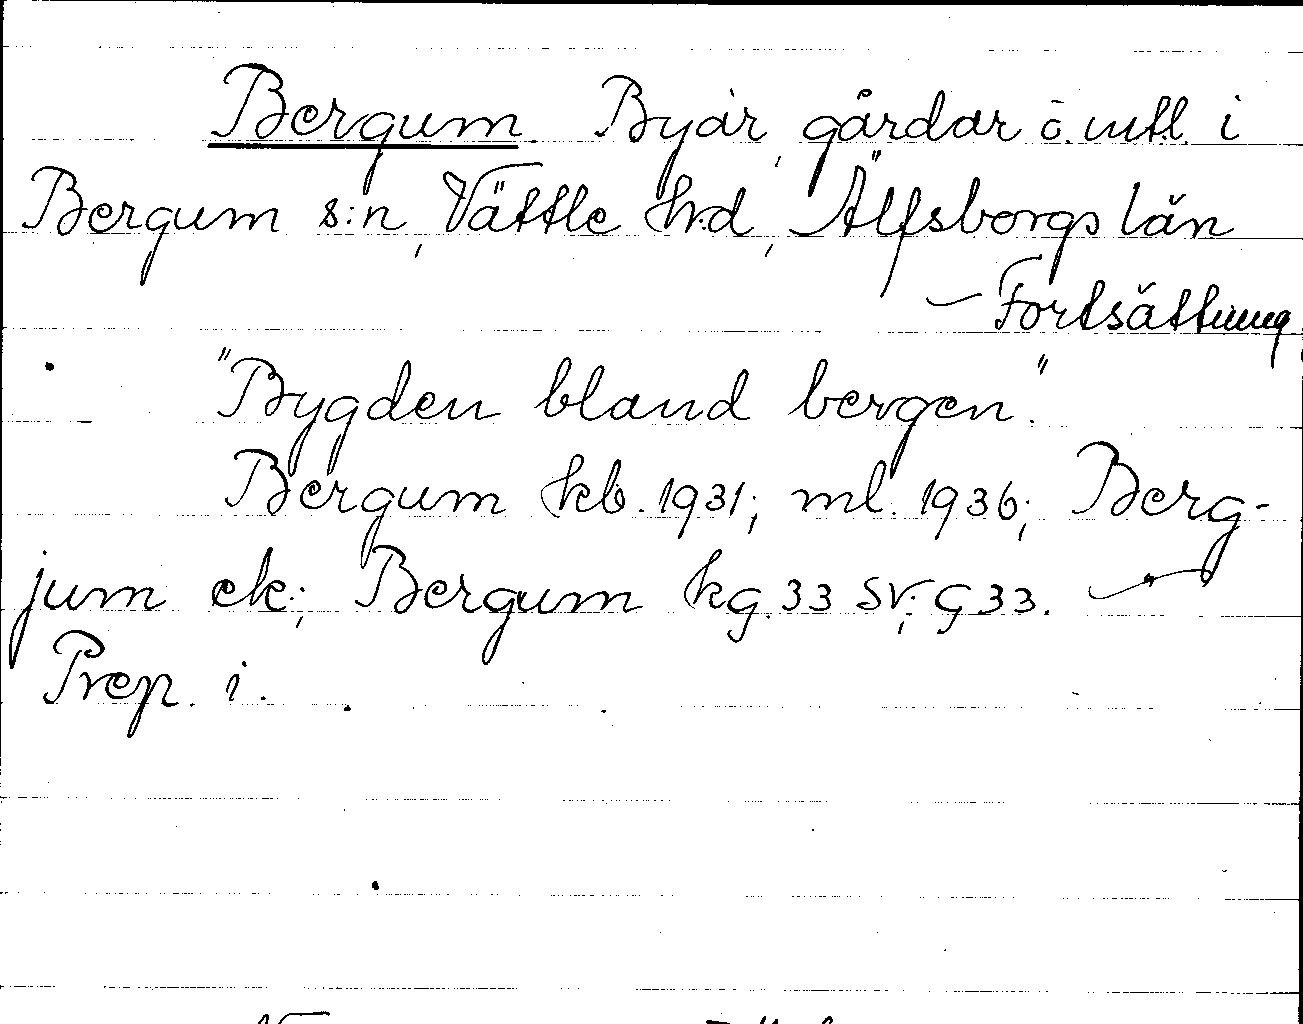 Bergum. Byar, gårdar o. utfl. i
Bergum s:n, Vättle hd, Älfsborgs län
— Fortsättning
"Bygden bland bergen."
Bergum kb. 1931; ml. 1936; Berg-
jum ek.; Bergum kg. 33 SV; G 33. —
Prep. i.